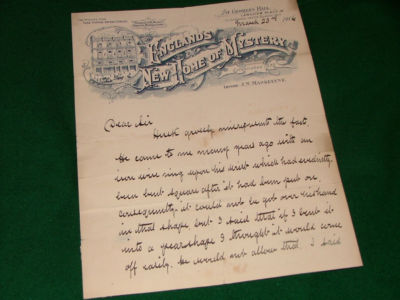 St George's Hall,
LANGHAM PLACE, W.
March 23rd 1914
ENGLAND'S
NEW HOME OF MYSTERY
J. N. MASKELYNE
Dear Sir
grossly misrepresents the facts,
He came to me many years ago with an
iron wire ring upon his wrist which had evidently
been bent square after it had been put on,
consequently, it could not be got over his hand
in that shape but I said that if I bent it
into a pear shape I thought it would come
off easily. He would not allow that. I said